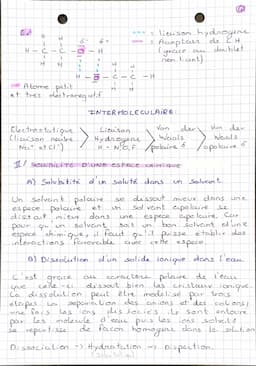 Ex:
H H δ- δ+
H - C - C - O - H
H H
H - O - C - C - H
= liaison hydrogène
= Accepteur de L H
(grâce au doublet
non liant)
= Atome petit
et très électronégatif
INTERMOLECULAIRE:
Electrostatique
(liaison neutre
Na+ et Cl-)
> Liaison
Hydrogène
H - N/O/F
> Van der
Waals
polaire δ
> Van der
Waals
apolaire δ
II/ SOLUBILITÉ D'UNE ESPECE CHIMIQUE
A) Solubilité d'un soluté dans un solvant
Un solvant polaire se dissout mieux dans une
espèce polaire et un solvant apolaire se
dissout mieux dans une espèce apolaire. Car
pour qu'un solvant soit un bon solvant d'une
espèce chimique, il faut qu'il puisse établir des
interactions favorable avec cette espèce.
B) Dissolution d'un solide ionique dans l'eau
C'est grâce au caractère polaire de l'eau
que celle-ci dissout bien les cristaux ionique.
La dissolution peut être modélisé par trois
étapes. La séparation des anions et des cations,
une fois les ions dissociés ils sont entouré
par les molécule d'eau puis les ions solvaté
se répartisse de façon homogène dans la solution
Dissociation -> Hydratation -> Dispersion